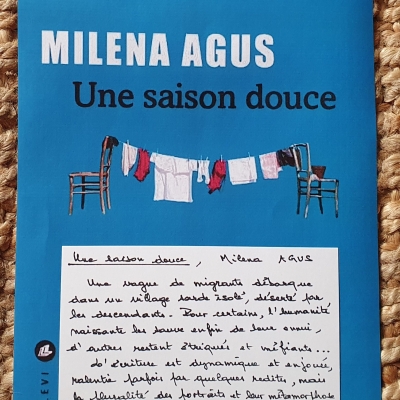 MILENA AGUS
Une saison douce
LEVI
Une saison douce, Milena AGUS
Une vague de migrants débarque
dans un village sarde isolé, déserté par
les descendants. Pour certains, l'humanité
naissante les sauve enfin de leur ennui,
d'autres restent étriqués et méfiants...
L'écriture est dynamique et enjouée,
ralentie parfois par quelques redites, mais
la pluralité des portraits et leur métamorphose